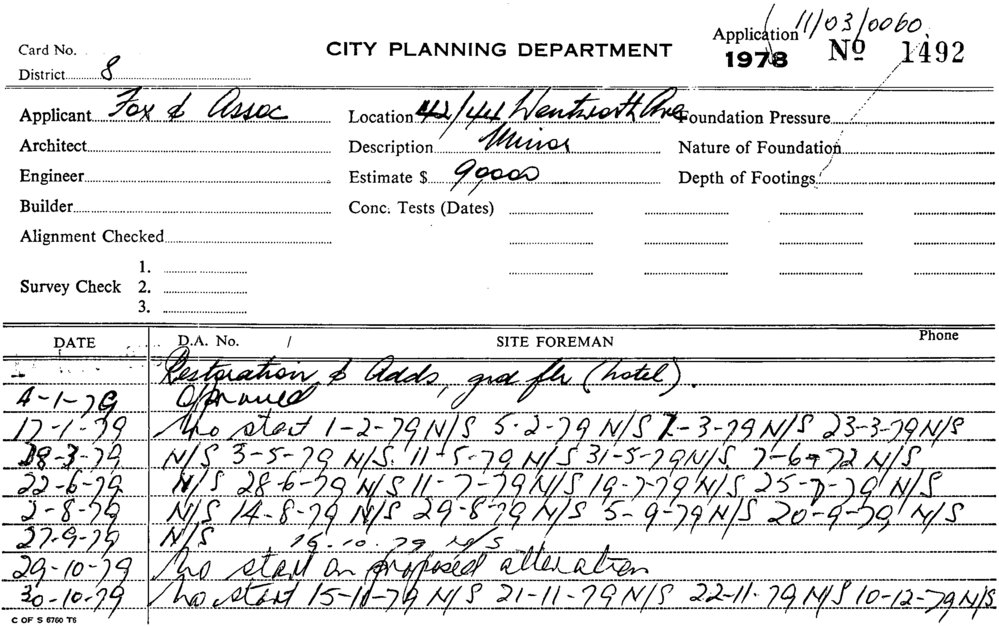 Application 11/03/0060
CITY PLANNING DEPARTMENT
1978 Nº 1492
Card No.
District 8
Applicant Fox & Assoc Location 42/44 Wentworth Ave Foundation Pressure
Architect Description Minor Nature of Foundation
Engineer Estimate $ 90000 Depth of Footings
Builder Conc. Tests (Dates)
Alignment Checked
1.
Survey Check 2.
3.
DATE D.A. No. / SITE FOREMAN Phone
Restoration & Adds, grd flr (hotel).
4-1-79 Approved
17-1-79 No start 1-2-79 N/S 5-2-79 N/S 7-3-79 N/S 23-3-79 N/S
28-3-79 N/S 3-5-79 N/S. 11-5-79 N/S 31-5-79 N/S 7-6-72 N/S
22-6-79 N/S 28-6-79 N/S 11-7-79 N/S 19-7-79 N/S 25-7-79 N/S
2-8-79 N/S 14-8-79 N/S 29-8-79 N/S 5-9-79 N/S 20-9-79 N/S
27-9-79 N/S 15-10-79 N/S
29-10-79 No start on proposed alteration
30-10-79 No start 15-11-79 N/S 21-11-79 N/S 22-11-79 N/S 10-12-79 N/S
C OF S 6760 T6